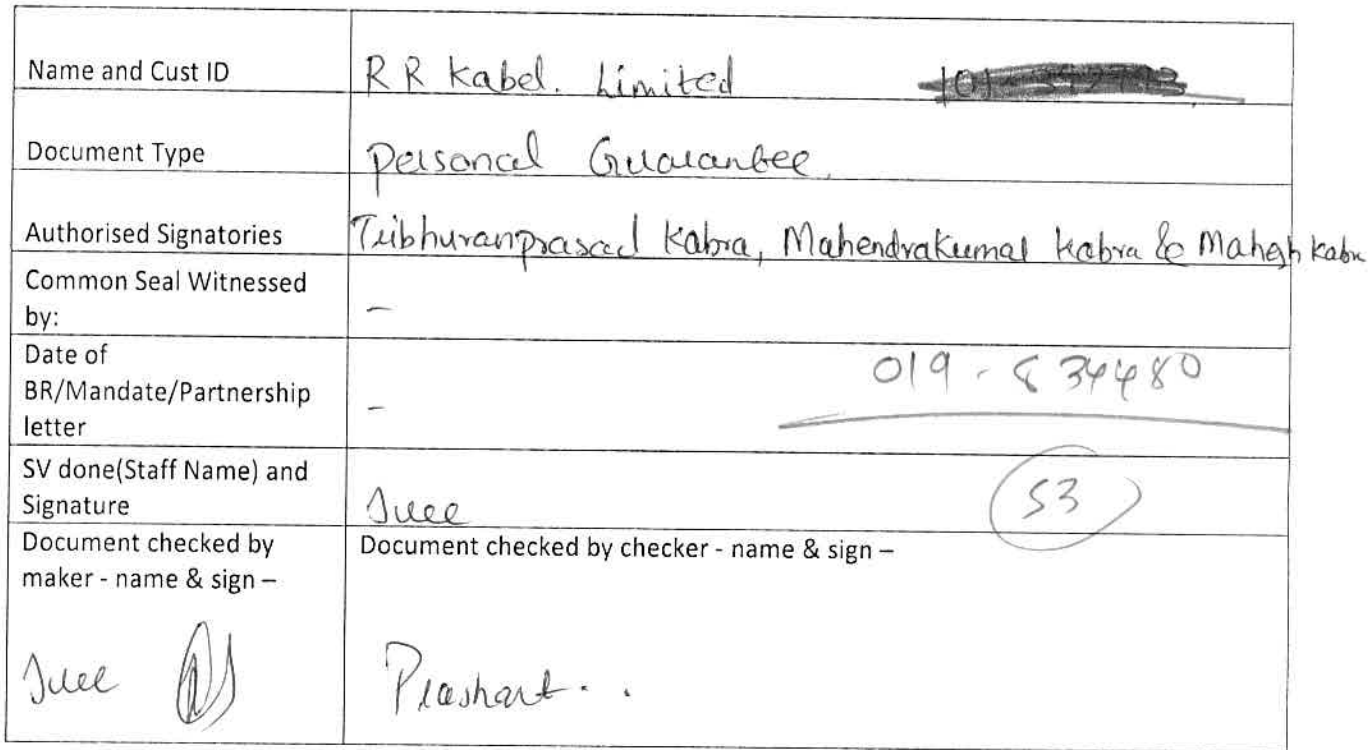 Name and Cust ID R R Kabel. Limited
Document Type Personal Guarantee
Authorised Signatories Tribhuvanprasad Kabra, Mahendrakumar Kabra & Mahesh Kabra
Common Seal Witnessed
by: -
Date of
BR/Mandate/Partnership
letter -
019-834480
SV done(Staff Name) and
Signature Juee
53
Document checked by
maker - name & sign –
Juee
Document checked by checker - name & sign –
Prashant..